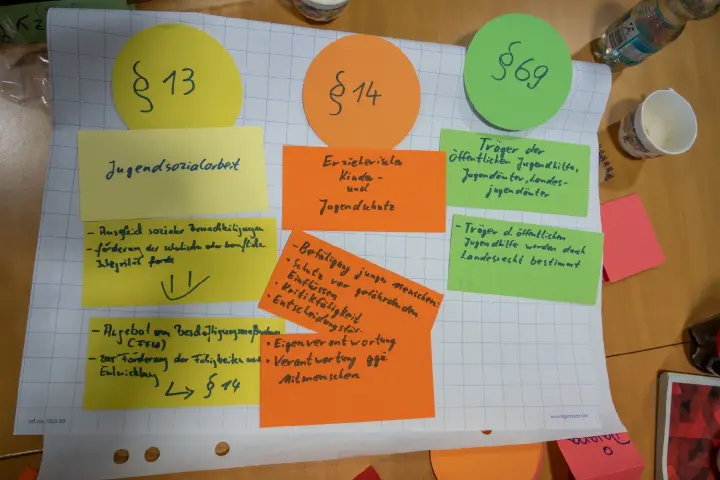 § 13
Jugendsozialarbeit
- Ausgleich sozialer Benachteiligungen
- förderung der schulische oder berufliche
Integrität
- Angebot von Beschäftigungsmaßnahmen
- zur Förderung der Fähigkeiten und
Entwicklung
↳ § 14
§ 14
Erzieherischer
Kinder-
und
Jugendschutz
- Befähigung junger menschen:
• Schutz vor gefährdenden
Einflüssen
• Kritikfähigkeit
• Entscheidungsfäh
• Eigenverantwortung
• Verantwortung ggü
Mitmenschen
§ 69
Träger der
öffentlichen Jugendhilfe,
Jugendämter, Landes-
jugendämter
- Träger d. öffentlichen
Jugendhilfe werden durch
Landesrecht bestimmt